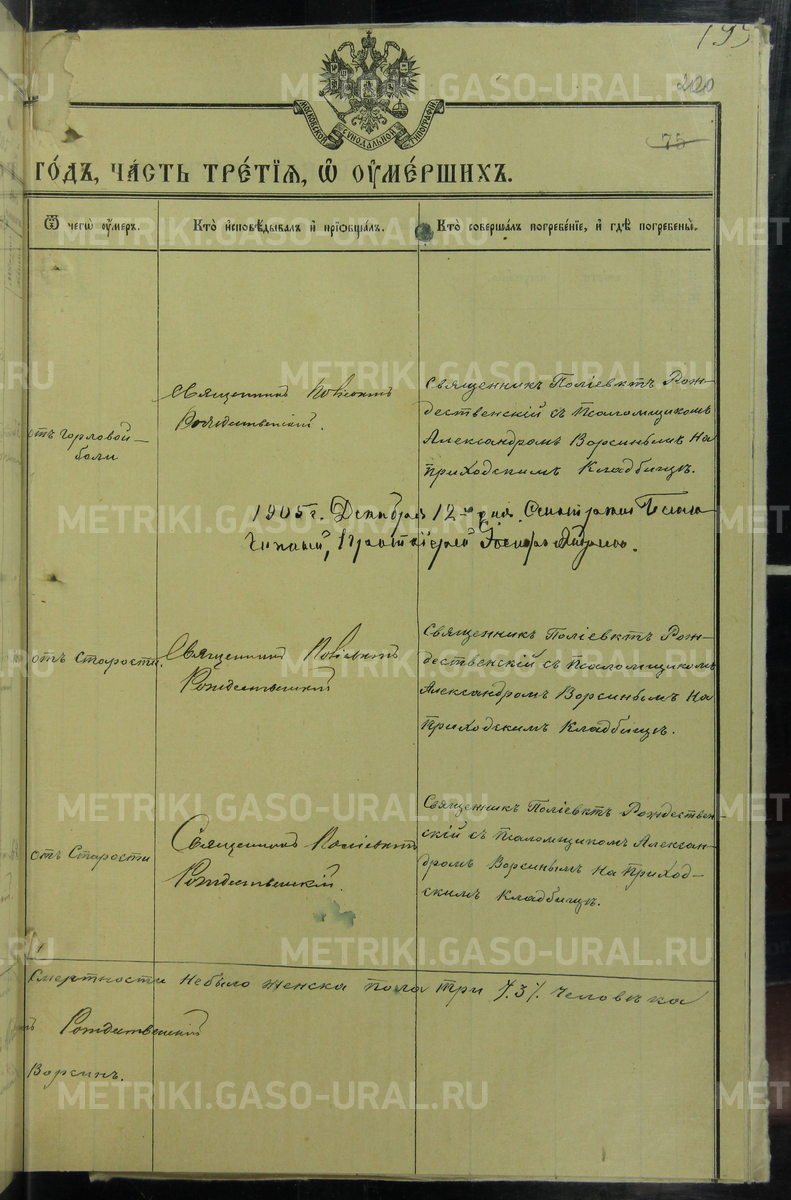 195
220
75
МОСКОВСКОЙ СѴНОДАЛЬНОЙ ТИПОГРАФІИ
ГО́ДЪ, ЧА́СТЬ ТРЕ́ТІѦ, Ѽ ОУ҆МЕ́РШИХЪ.
Ѿ чегѡ̀ ᲂу҆́меръ.
Кто̀ и҆сповѣ́дывалъ и҆ прїѡбща́лъ.
Кто̀ соверша́лъ погребе́нїе, и҆ гдѣ̀ погребены̀.
отъ горловой
боли
Священникъ Поліевктъ
Рождественскій.
Священникъ Поліевктъ Рож-
дественскій съ Псаломщикомъ
Александромъ Ворсинымъ на
приходскимъ Кладбищѣ.
1905 г. Декабря 12-го дня.
Протоіерей
отъ Старости.
Священникъ Поліевктъ
Рождественскій
Священникъ Поліевктъ Рож-
дественскій съ Псаломщикомъ
Александромъ Ворсинымъ на
Приходскимъ Кладбищѣ.
отъ Старости
Священникъ Поліевктъ
Рождественскій.
Священникъ Поліевктъ Рождествен-
скій съ Псаломщикомъ Алексан-
дромъ Ворсинымъ на Приход-
скимъ Кладбищѣ.
Смертности небыло женска пола три /.3/. Человѣка
Рождественскій
Ворсинъ.
METRIKI.GASO-URAL.RU